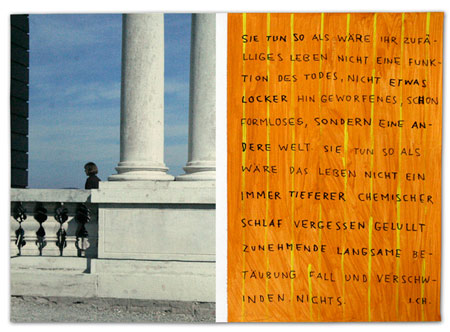 SIE TUN SO ALS WÄRE IHR ZUFÄ-
LLIGES LEBEN NICHT EINE FUNK-
TION DES TODES, NICHT ETWAS
LOCKER HIN GEWORFENES, SCHON
FORMLOSES, SONDERN EINE AN-
DERE WELT. SIE TUN SO ALS
WÄRE DAS LEBEN NICHT EIN
IMMER TIEFERER CHEMISCHER
SCHLAF VERGESSEN GELULLT
ZUNEHMENDE LANGSAME BE-
TÄUBUNG FALL UND VERSCHW-
INDEN. NICHTS. J.CH.